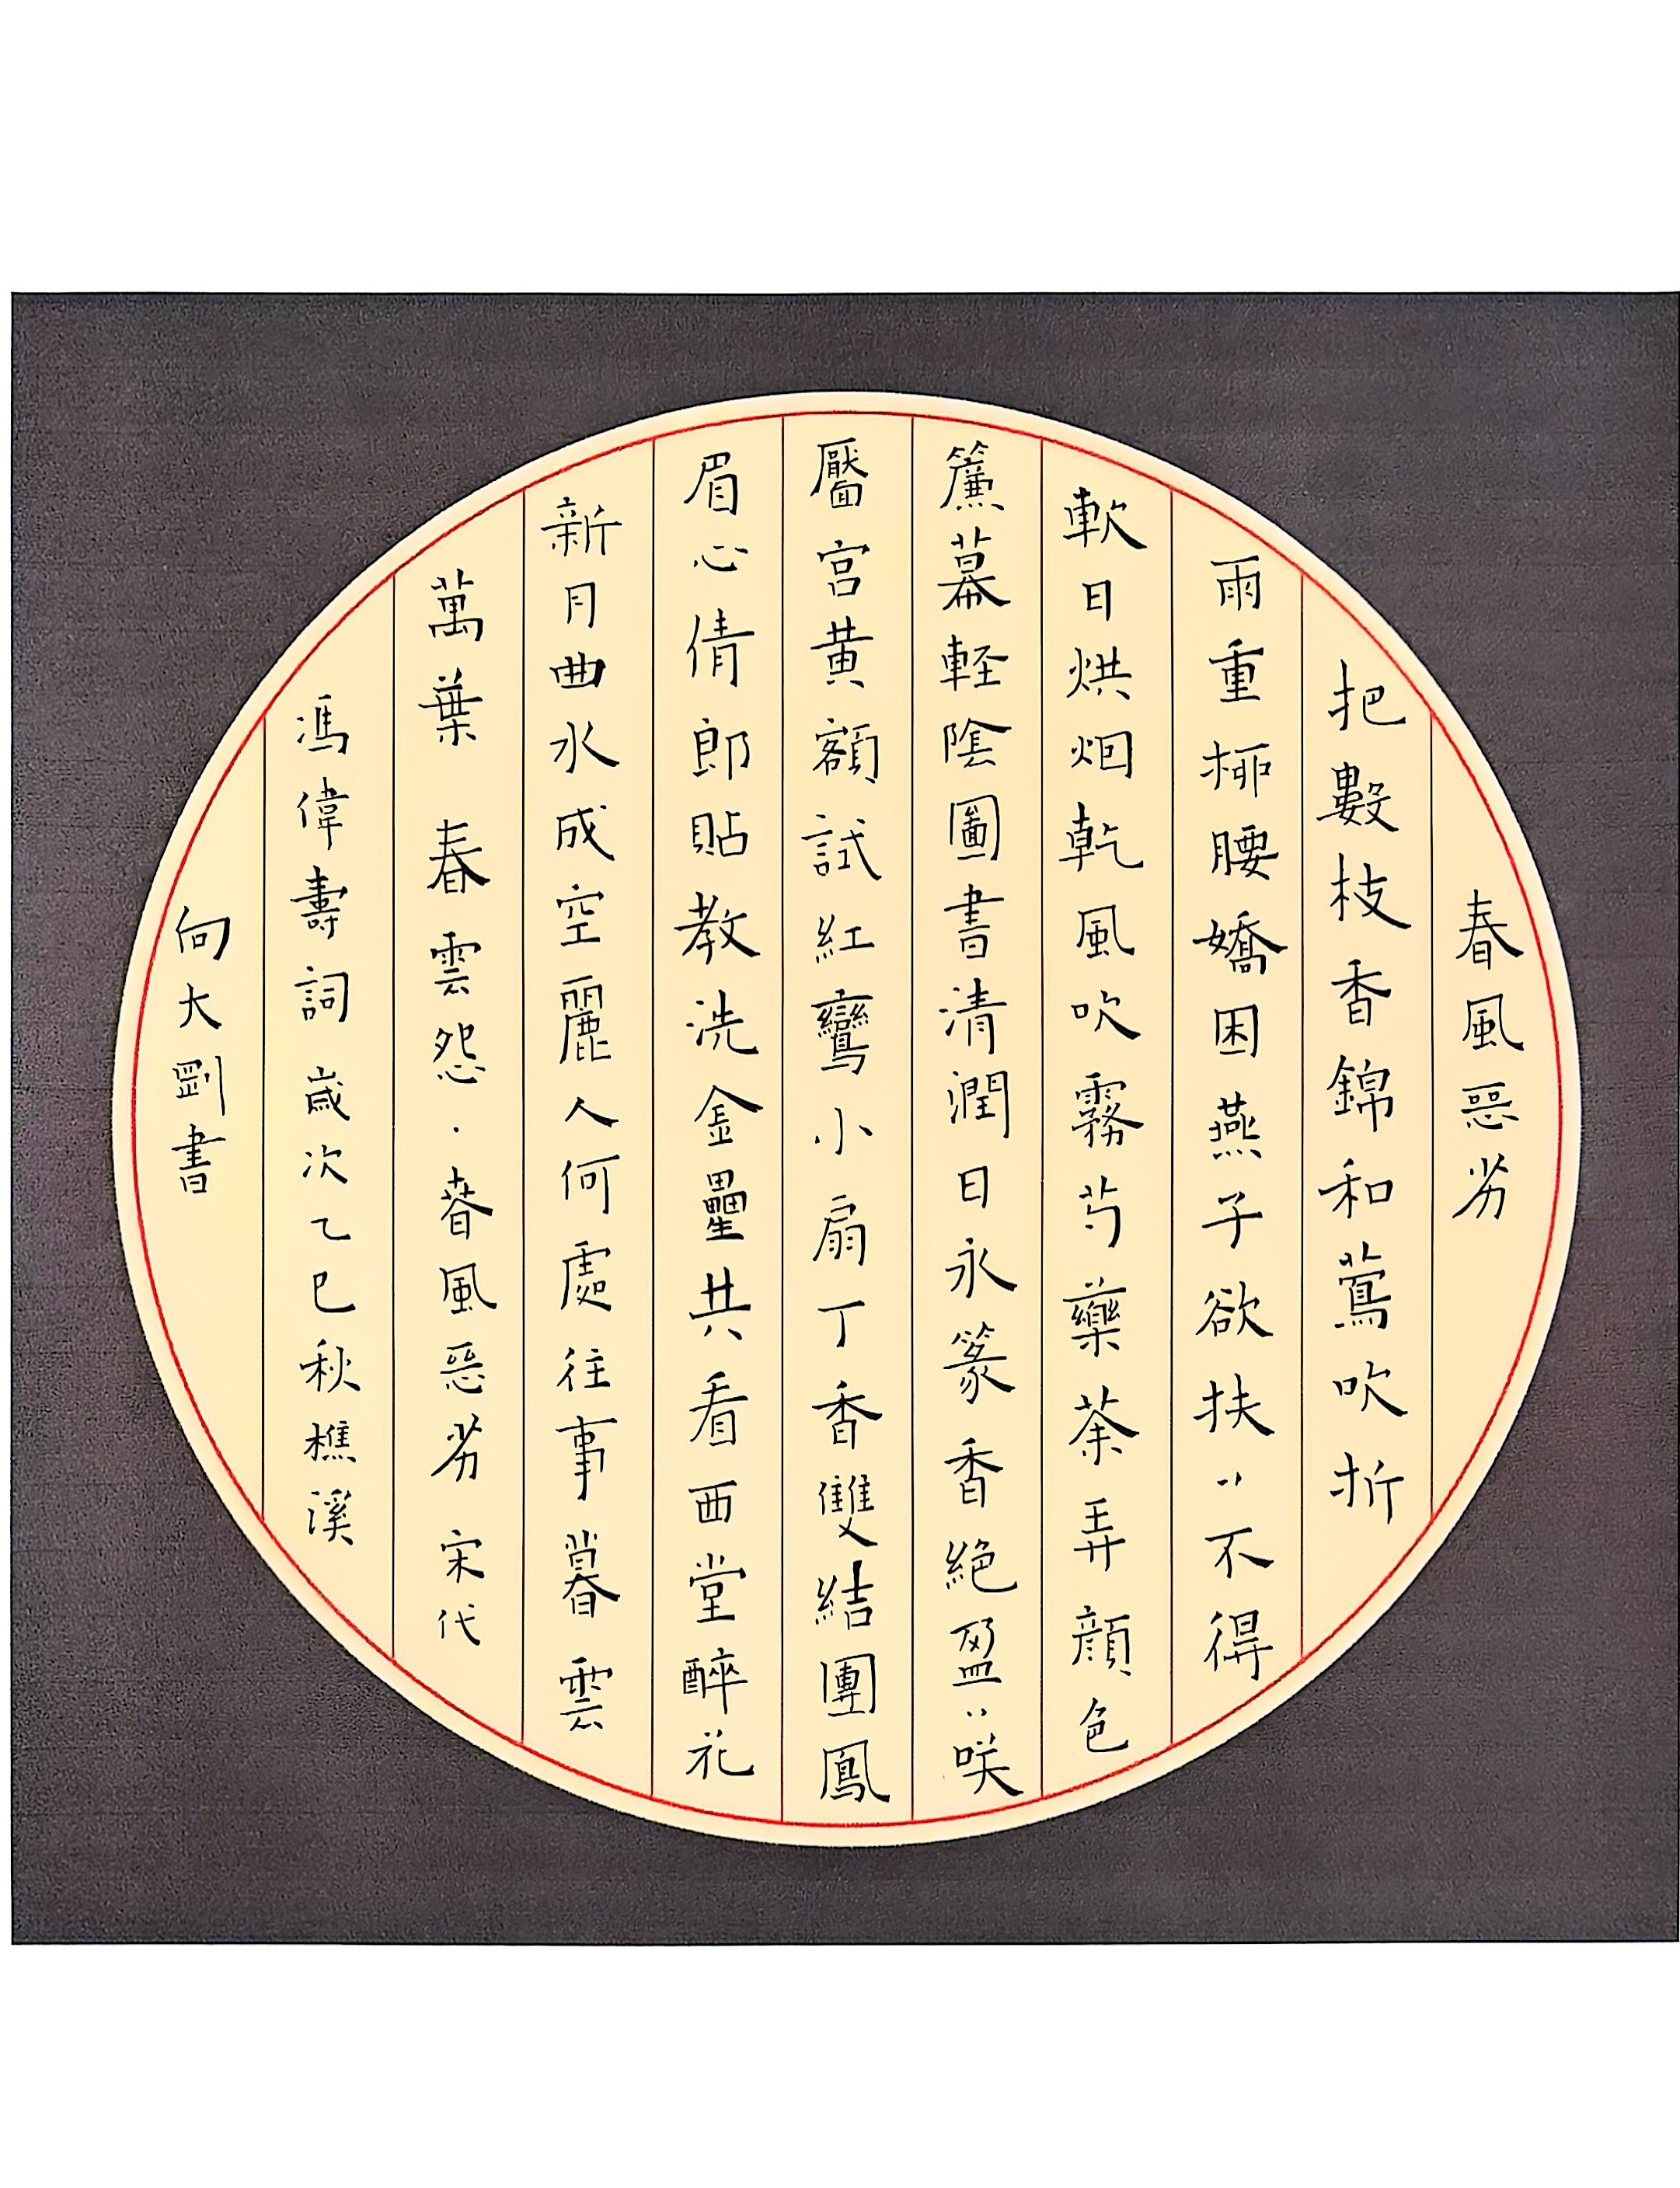 春風惡劣
把數枝香錦和鶯吹折
雨重桺腰嬌困燕子欲扶〻不得
軟日烘烟乾風吹霧芍藥荼弄顏色
簾幕輕陰圖書清潤日永篆香絕盈〻咲
靨宮黃額試紅鸞小扇丁香雙結團鳳
眉心倩郎貼教洗金罍共看西堂醉花
新月曲水成空麗人何處往事暮雲
萬葉 春雲怨·春風惡劣 宋代
馮偉壽詞 歲次乙巳秋樵溪
向大劉書